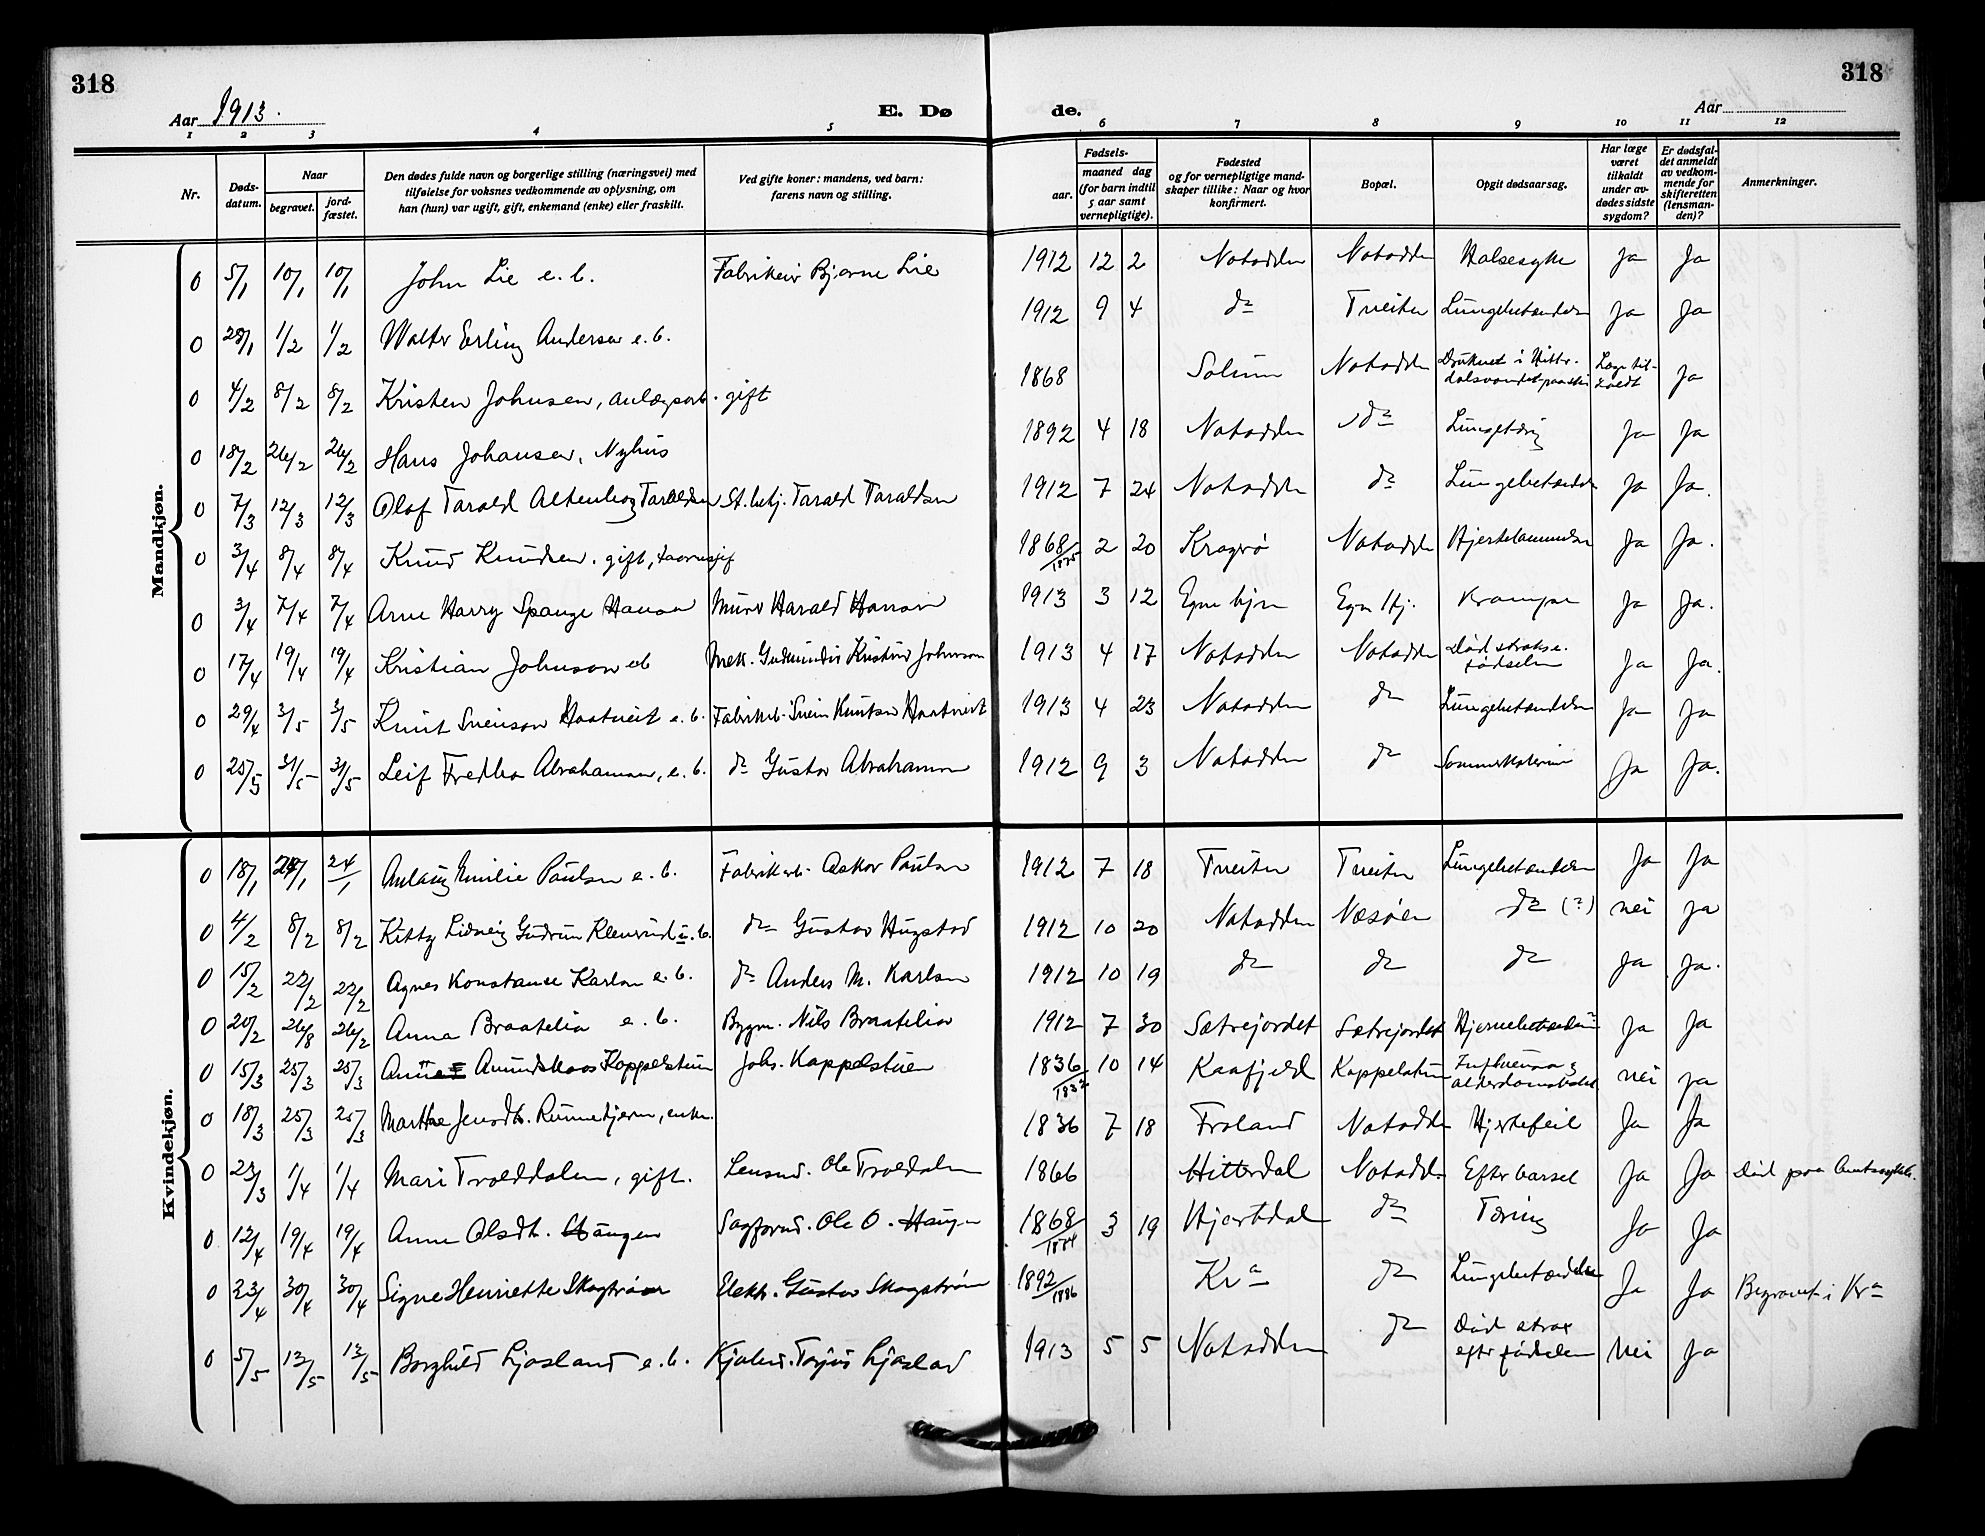 318
318
Aar 1913.
E. Døde.
Aar
1 2 3 4 5 6 7 8 9 10 11 12
Nr.
Døds-datum.
Naar
begravet.
jord-fæstet.
Den dødes fulde navn og borgerlige stilling (næringsvei) med
tilføielse for voksnes vedkommende av oplysning, om
han (hun) var ugift, gift, enkemand (enke) eller fraskilt.
Ved gifte koner: mandens, ved barn:
farens navn og stilling.
Fødsels-
aar.
maaned dag
(for barn indtil
5 aar samt
vernepligtige).
Fødested
og for vernepligtige mand-
skaper tillike: Naar og hvor
konfirmert.
Bopæl.
Opgit dødsaarsag.
Har læge
været
tilkaldt
under av-
dødes sidste
sygdom?
Er dødsfal-
det anmeldt
av vedkom-
mende for
skifteretten
(lensman-
den)?
Anmerkninger.
Mandkjøn.
0 5/1 10/1 10/1 John Lie e. b. Fabrikeier Bjarne Lie 1912 12 2 Notodden Notodden Halsesyke Ja Ja
0 28/1 1/2 1/2 Walter Erling Andersen e. b. 1912 9 4 do Tveiten Lungebetændelse Ja Ja
0 4/2 8/2 8/2 Kristen Johnsen, anlægsarb. gift 1868 Solum Notodden Druknet i Hitter-
dalsvandet paa ski Læge til-
kaldt Ja
0 18/2 26/2 26/2 Hans Johansen, Nyhus 1892 4 18 Notodden do Lungetæring Ja Ja
0 7/3 12/3 12/3 Olaf Tarald Altenborg Taraldsen St.betj. Tarald Taraldsen 1912 7 24 Notodden do Lungebetændelse Ja Ja.
0 3/4 8/4 8/4 Knud Knudsen. gift, 1868/1875 2 20 Kragerø Notodden Hjertelammelse Ja Ja.
0 3/4 7/4 7/4 Arne Harry Spange Hanson Murer Harald Hanson 1913 3 12 Egne hjem Egne Hj. Krampe Ja Ja.
0 17/4 19/4 19/4 Kristian Johnson eb Mek. Gudmundur Kristian Johnson 1913 4 17 Notodden Notodden Død straks e.
fødselen Ja Ja.
0 29/4 3/5 3/5 Knut Sveinson Haatveit e. b. Fabrikarb. Svein Knutson Haatveit 1913 4 23 Notodden do Lungebetændelse Ja Ja
0 25/5 31/5 31/5 Leif Fredbo Abrahamson, e. b. do Gustav Abrahamson 1912 9 3 Notodden do Sommerkolerine Ja Ja.
Kvindekjøn.
0 18/1 24/1 24/1 Aslaug Emilie Paulsen e. b. Fabrikarb. Oskar Paulsen 1912 7 18 Tveiten Tveiten Lungebetændelse Ja Ja
0 4/2 8/2 8/2 Kitty Solveig Gudrun Klemsrud u. b. do Gustav Hugstad 1912 10 20 Notodden Næsøen do (?) nei ja
0 15/2 22/2 22/2 Agnes Konstance Karlson e. b. do Anders M. Karlson 1912 10 19 do do do Ja Ja.
0 20/2 26/8 26/2 Anna Braatelia e. b. Bygm. Nils Braatelia 1912 7 30 Sætrejordet Sætrejordet Hjernebetændelse Ja Ja
0 15/3 25/3 25/3 Anne Amundsdaas Kappelstuen Johs. Kappelstuen 1836/1832 10 14 Kaafjeld Kappelstuen Influensa og
alderdomssvakhet nei ja
0 18/3 25/3 25/3 Marthe Jensdt. Rinnekjern, enke. 1836 7 18 Froland Notodden Hjertefeil Ja Ja
0 23/3 1/4 1/4 Mari Trolddalen, gift. Lensmd. Ole Trolddalen 1866 Hitterdal Notodd. Efter barsel Ja Ja Død paa Amtssykh.
0 12/4 19/4 19/4 Anne Olsdt. Haugen Sagformd. Ole O. Haugen 1868/1874 3 19 Hjartdal do Tæring Ja Ja
0 23/4 30/4 30/4 Signe Henriette Skogstrøm Elekt. Gustav Skogstrøm 1892/1886 Kra do Lungebetændelse Ja Ja Begravet i Kra
0 5/5 13/5 13/5 Borghild Ljosland e. b. Kjøbmd. Torjus Ljosland 1913 5 5 Notodden do Død strax
efter fødselen Nei Ja